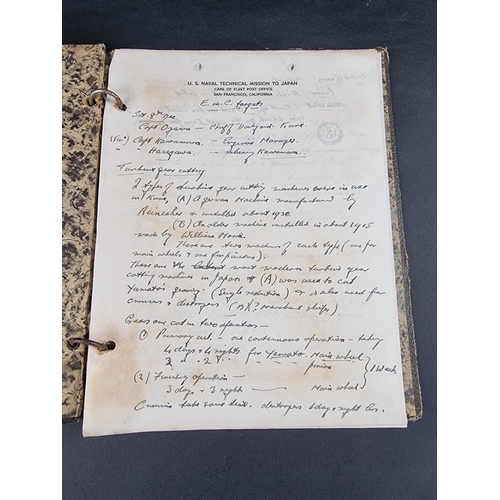 U. S. NAVAL TECHNICAL MISSION TO JAPAN
CARE OF FLEET POST OFFICE
SAN FRANCISCO, CALIFORNIA
E. in. C. targets
Sat. 8th Dec.
Capt Ogawa — Chief Dockyard. Kure.
Capt Kawamura. — Engine Manager.
" Hasegawa. —
Turbine gear cutting
2 types of turbine gear cutting machines were in use
in Kure, (A) A german machine manufactured by
Reinecker & installed about 1930.
(B) An older machine installed in about 1915
made by William Muir.
There are two machines of each type (one for
main wheels & one for pinions).
These are the most modern turbine gear
cutting machines in Japan & (A) was used to cut
Yamato's gearing. (Single reduction) & is also used for
cruisers & destroyers (B) (? Merchant ships).
Gears are cut in two operations —
(1) Primary cut. — one continuous operation — taking
4 days & 4 nights for Yamato Main wheel
2 " " 2 " pinion
(2) Finishing operation —
3 days & 3 nights — Main wheel
Cruisers take same time. destroyers 1 day & night less.